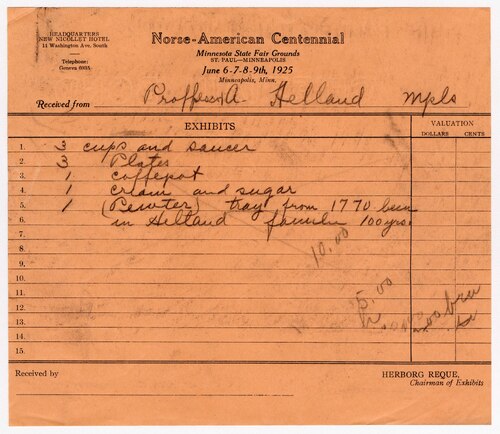 HEADQUARTERS
NEW NICOLLET HOTEL
11 Washington Ave. South
Telephone:
Geneva 6035
Norse-American Centennial
Minnesota State Fair Grounds
ST. PAUL—MINNEAPOLIS
June 6-7-8-9th, 1925
Minneapolis, Minn.
Received from Professor A Helland Mpls
EXHIBITS
VALUATION
DOLLARS CENTS
1. 3 cups and saucer
2. 3 Plates
3. 1 coffepot
4. 1 cream and sugar
5. 1 (Pewter) tray from 1770 been
6. in Helland familie 100 yrs.
7.
8. 10.00
9.
10.
11. 5.00
12.
13.
14.
15.
Received by
HERBORG REQUE,
Chairman of Exhibits